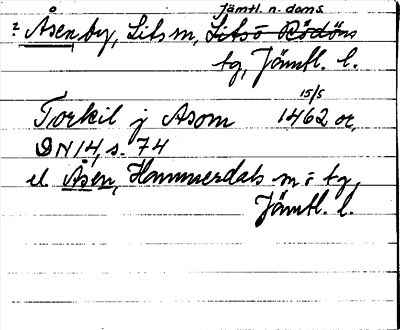 Jämtl. n. doms.
? Åsen by, Lits sn, Litsö Rödöns
tg, Jämtl. l.
Torkil j Asom 15/5 1462 or.
DN 14, s. 74
el. Åsen, Hammerdals sn o tg,
Jämtl. l.